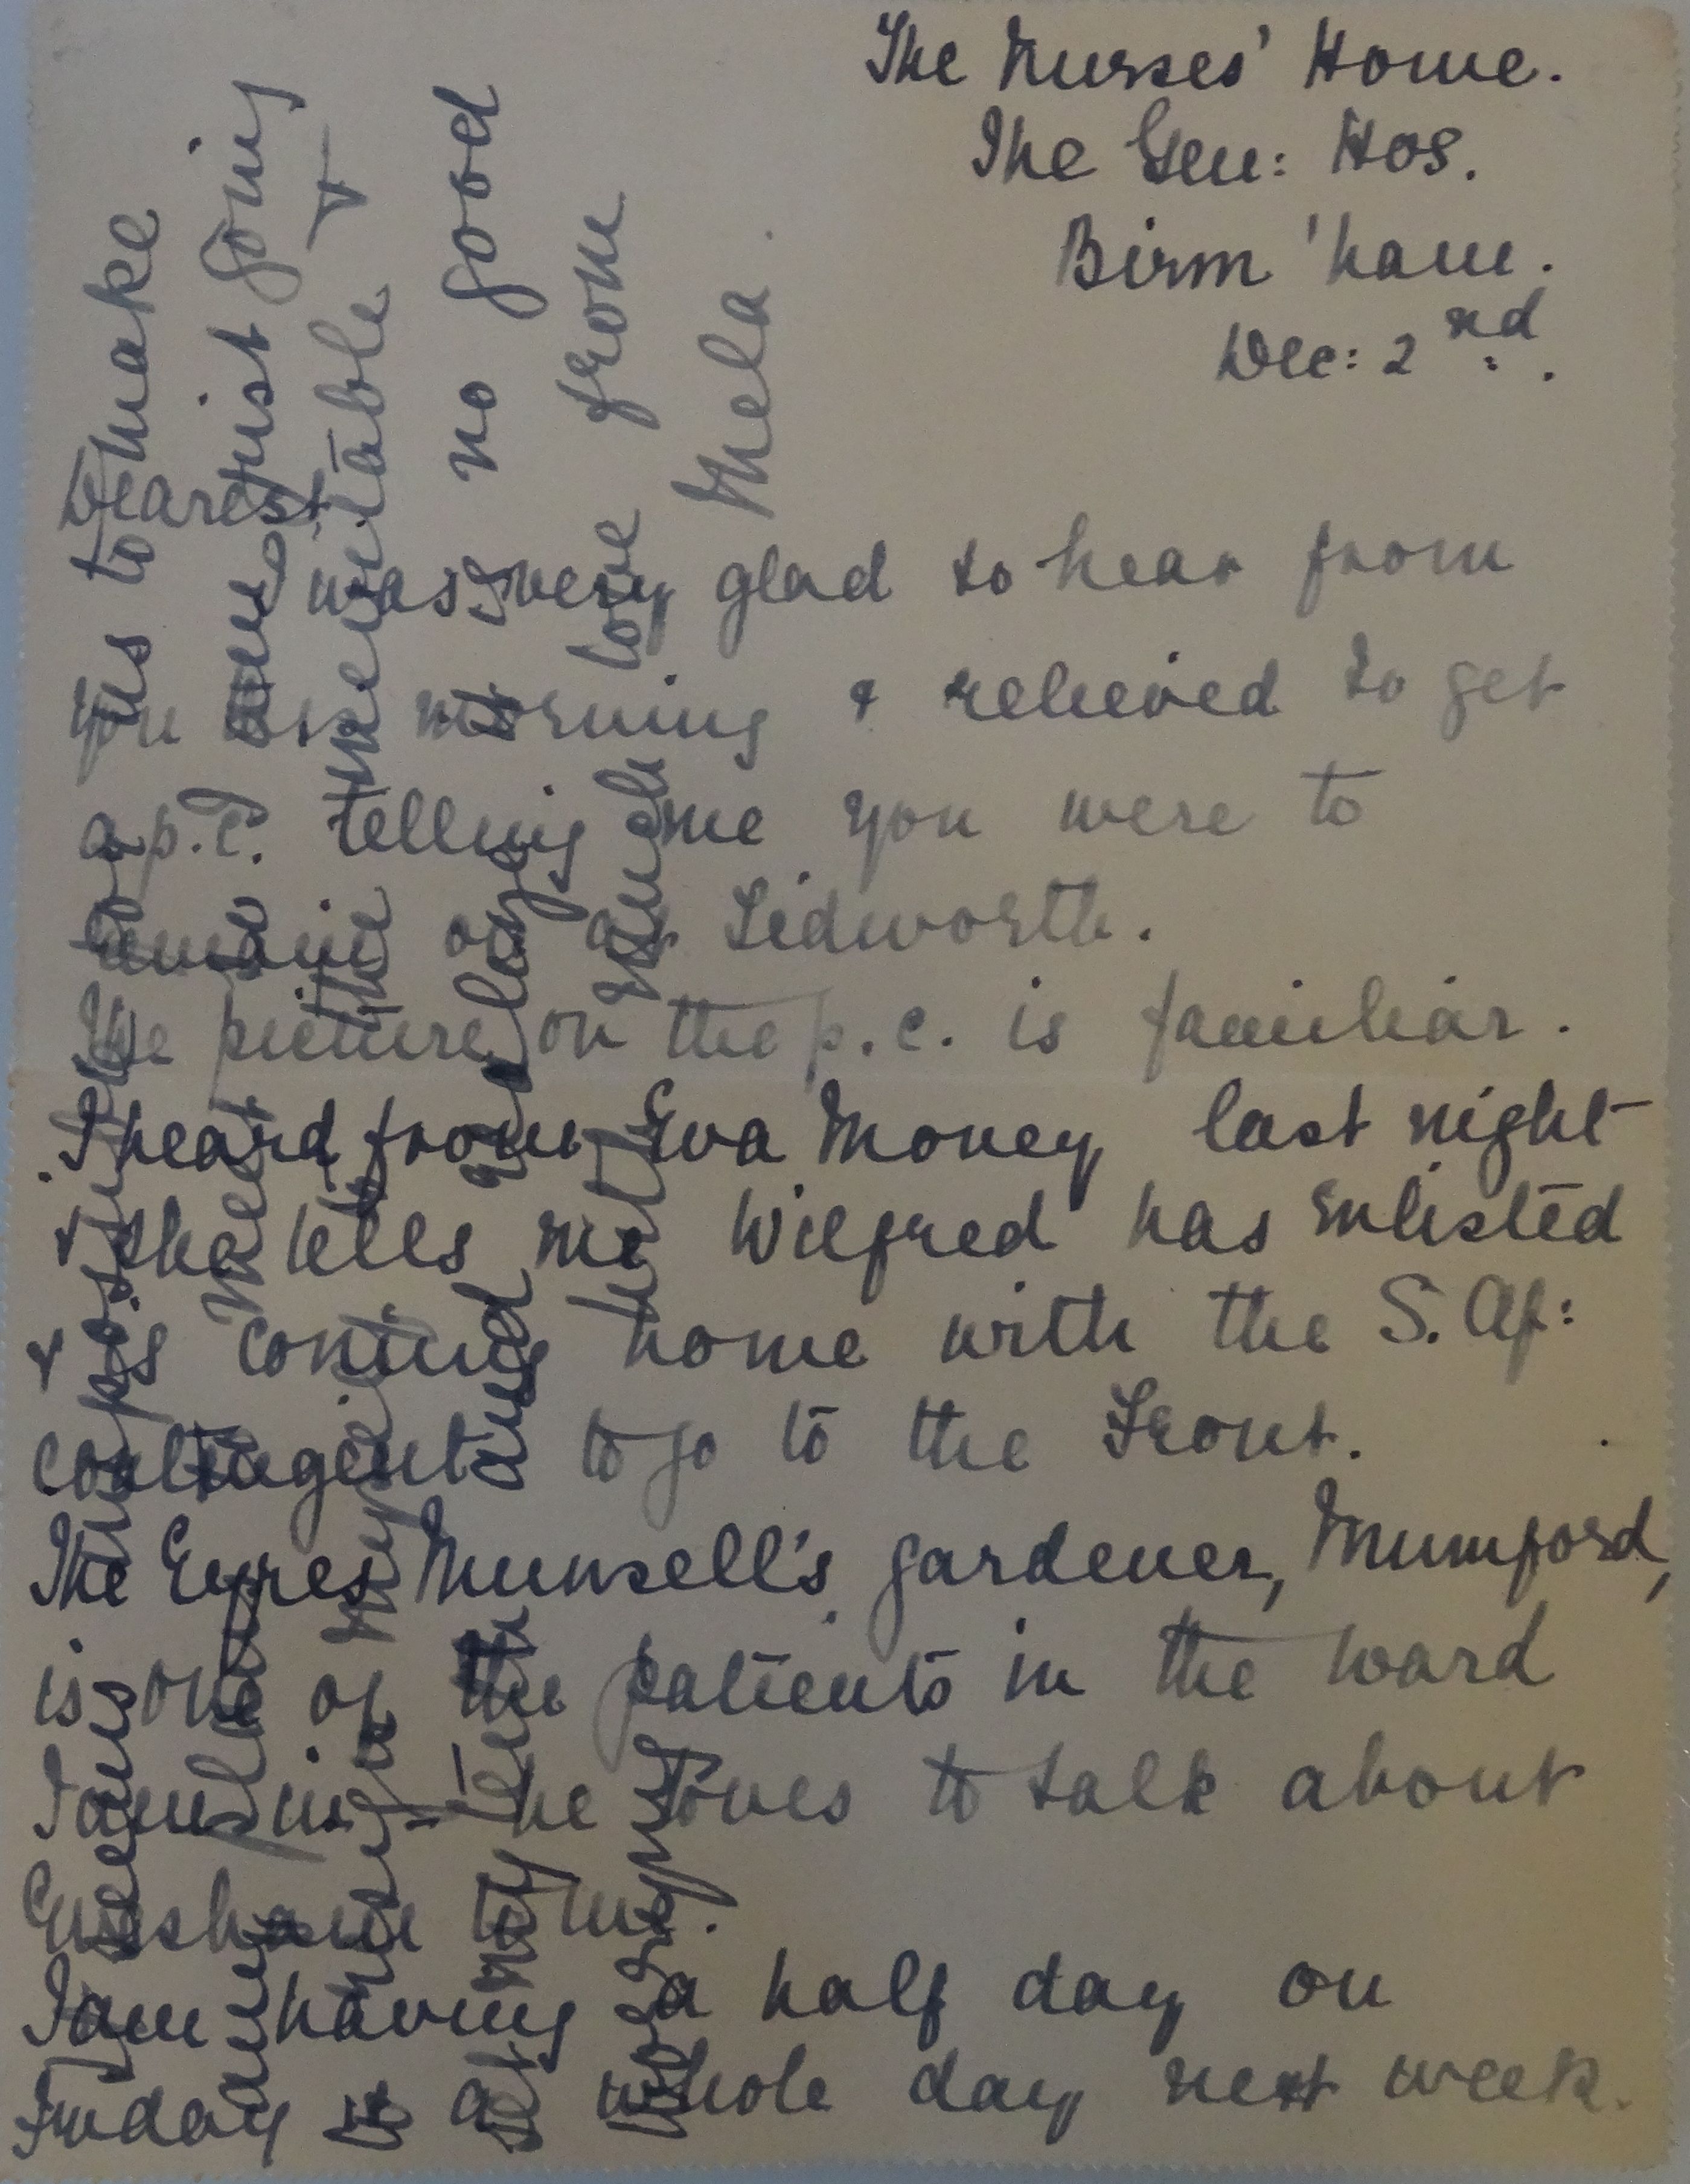 The Nurses' Home.
The Gen: Hos.
Birm'ham.
Dec: 2nd.
Dearest
I was very glad to hear from
you this morning & relieved to get
a p.c. telling me you were to
remain on at Tidworth.
The picture on the p.c. is familiar.
I heard from Eva Money last night
& she tells me Wilfred has enlisted
& is coming home with the S. Af:
contingent to go to the Front.
The Eyres Munsell's gardener, Mumford,
is one of the patients in the ward
I am in — he loves to talk about
Evesham to me.
I am having a half day on
Friday & a whole day next week.
It seems impossible for us to make
any to meet so am just going
to resign myself to the inevitable &
set my teeth and it is no good
worrying. With much love from
Mela.